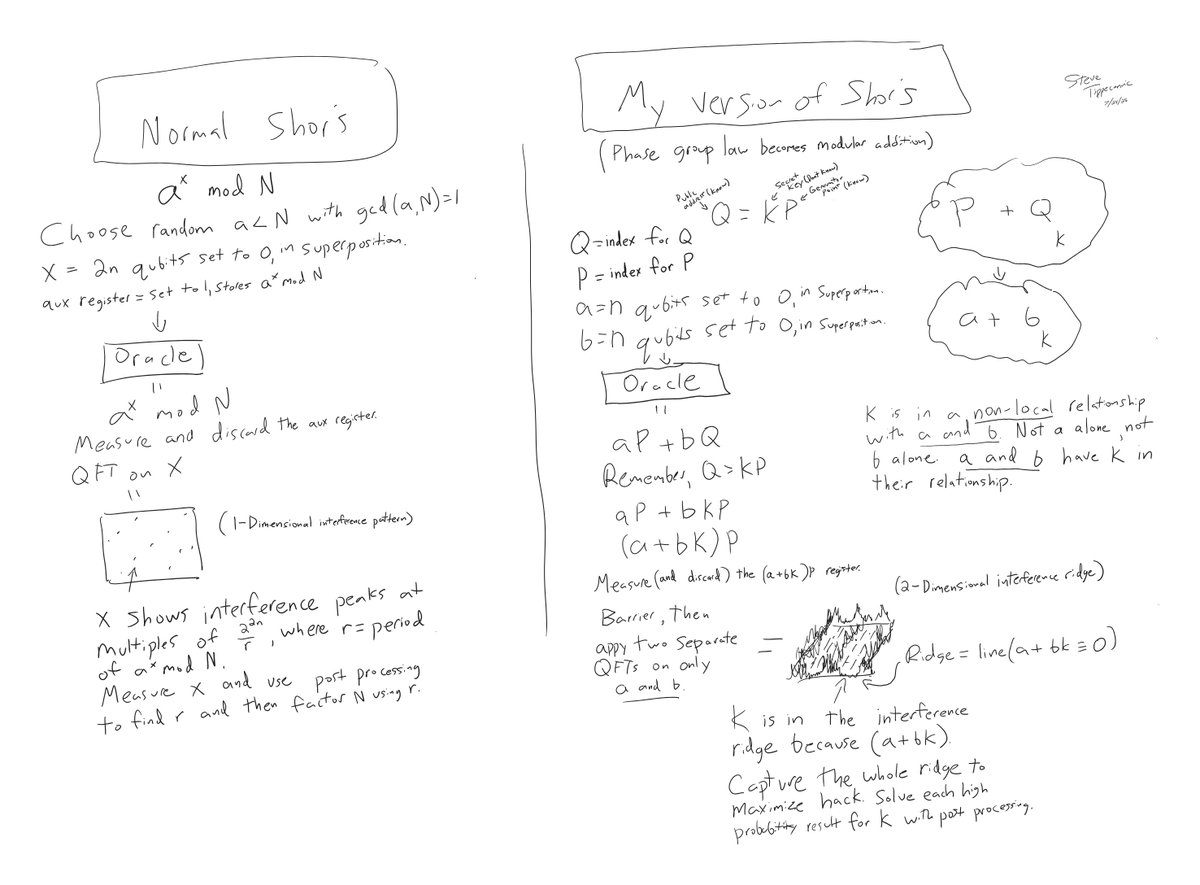 Normal Shor's
a^x mod N
Choose random a<N with gcd(a,N)=1
X = 2n qubits set to 0, in superposition.
aux register = set to 1, stores a^x mod N
↓
Oracle
=
a^x mod N
Measure and discard the aux register.
QFT on X
=
(1-Dimensional interference pattern)
X shows interference peaks at
multiples of 2^2n/r, where r=period
of a^x mod N.
Measure X and use post processing
to find r and then factor N using r.
My version of Shor's
Steve
Tippeconnic
(Phase group law becomes modular addition)
Public address (know)
Secret Key (don't know)
Generator Point (know)
Q = KP
Q=index for Q
P=index for P
a=n qubits set to 0, in superposition.
b=n qubits set to 0, in superposition.
↓
Oracle
=
aP + bQ
Remember, Q=KP
aP + bKP
(a+bK)P
Measure (and discard) the (a+bk)P register.
Barrier, then
appy two separate
QFTs on only
a and b.
=
(2-Dimensional interference ridge)
Ridge = line(a + bk ≡ 0)
K is in the interference
ridge because (a+bk).
Capture the whole ridge to
maximize hack. Solve each high
probability result for K with post processing.
P + Q
K
↓
a + b
K
K is in a non-local relationship
with a and b. Not a alone, not
b alone. a and b have K in
their relationship.